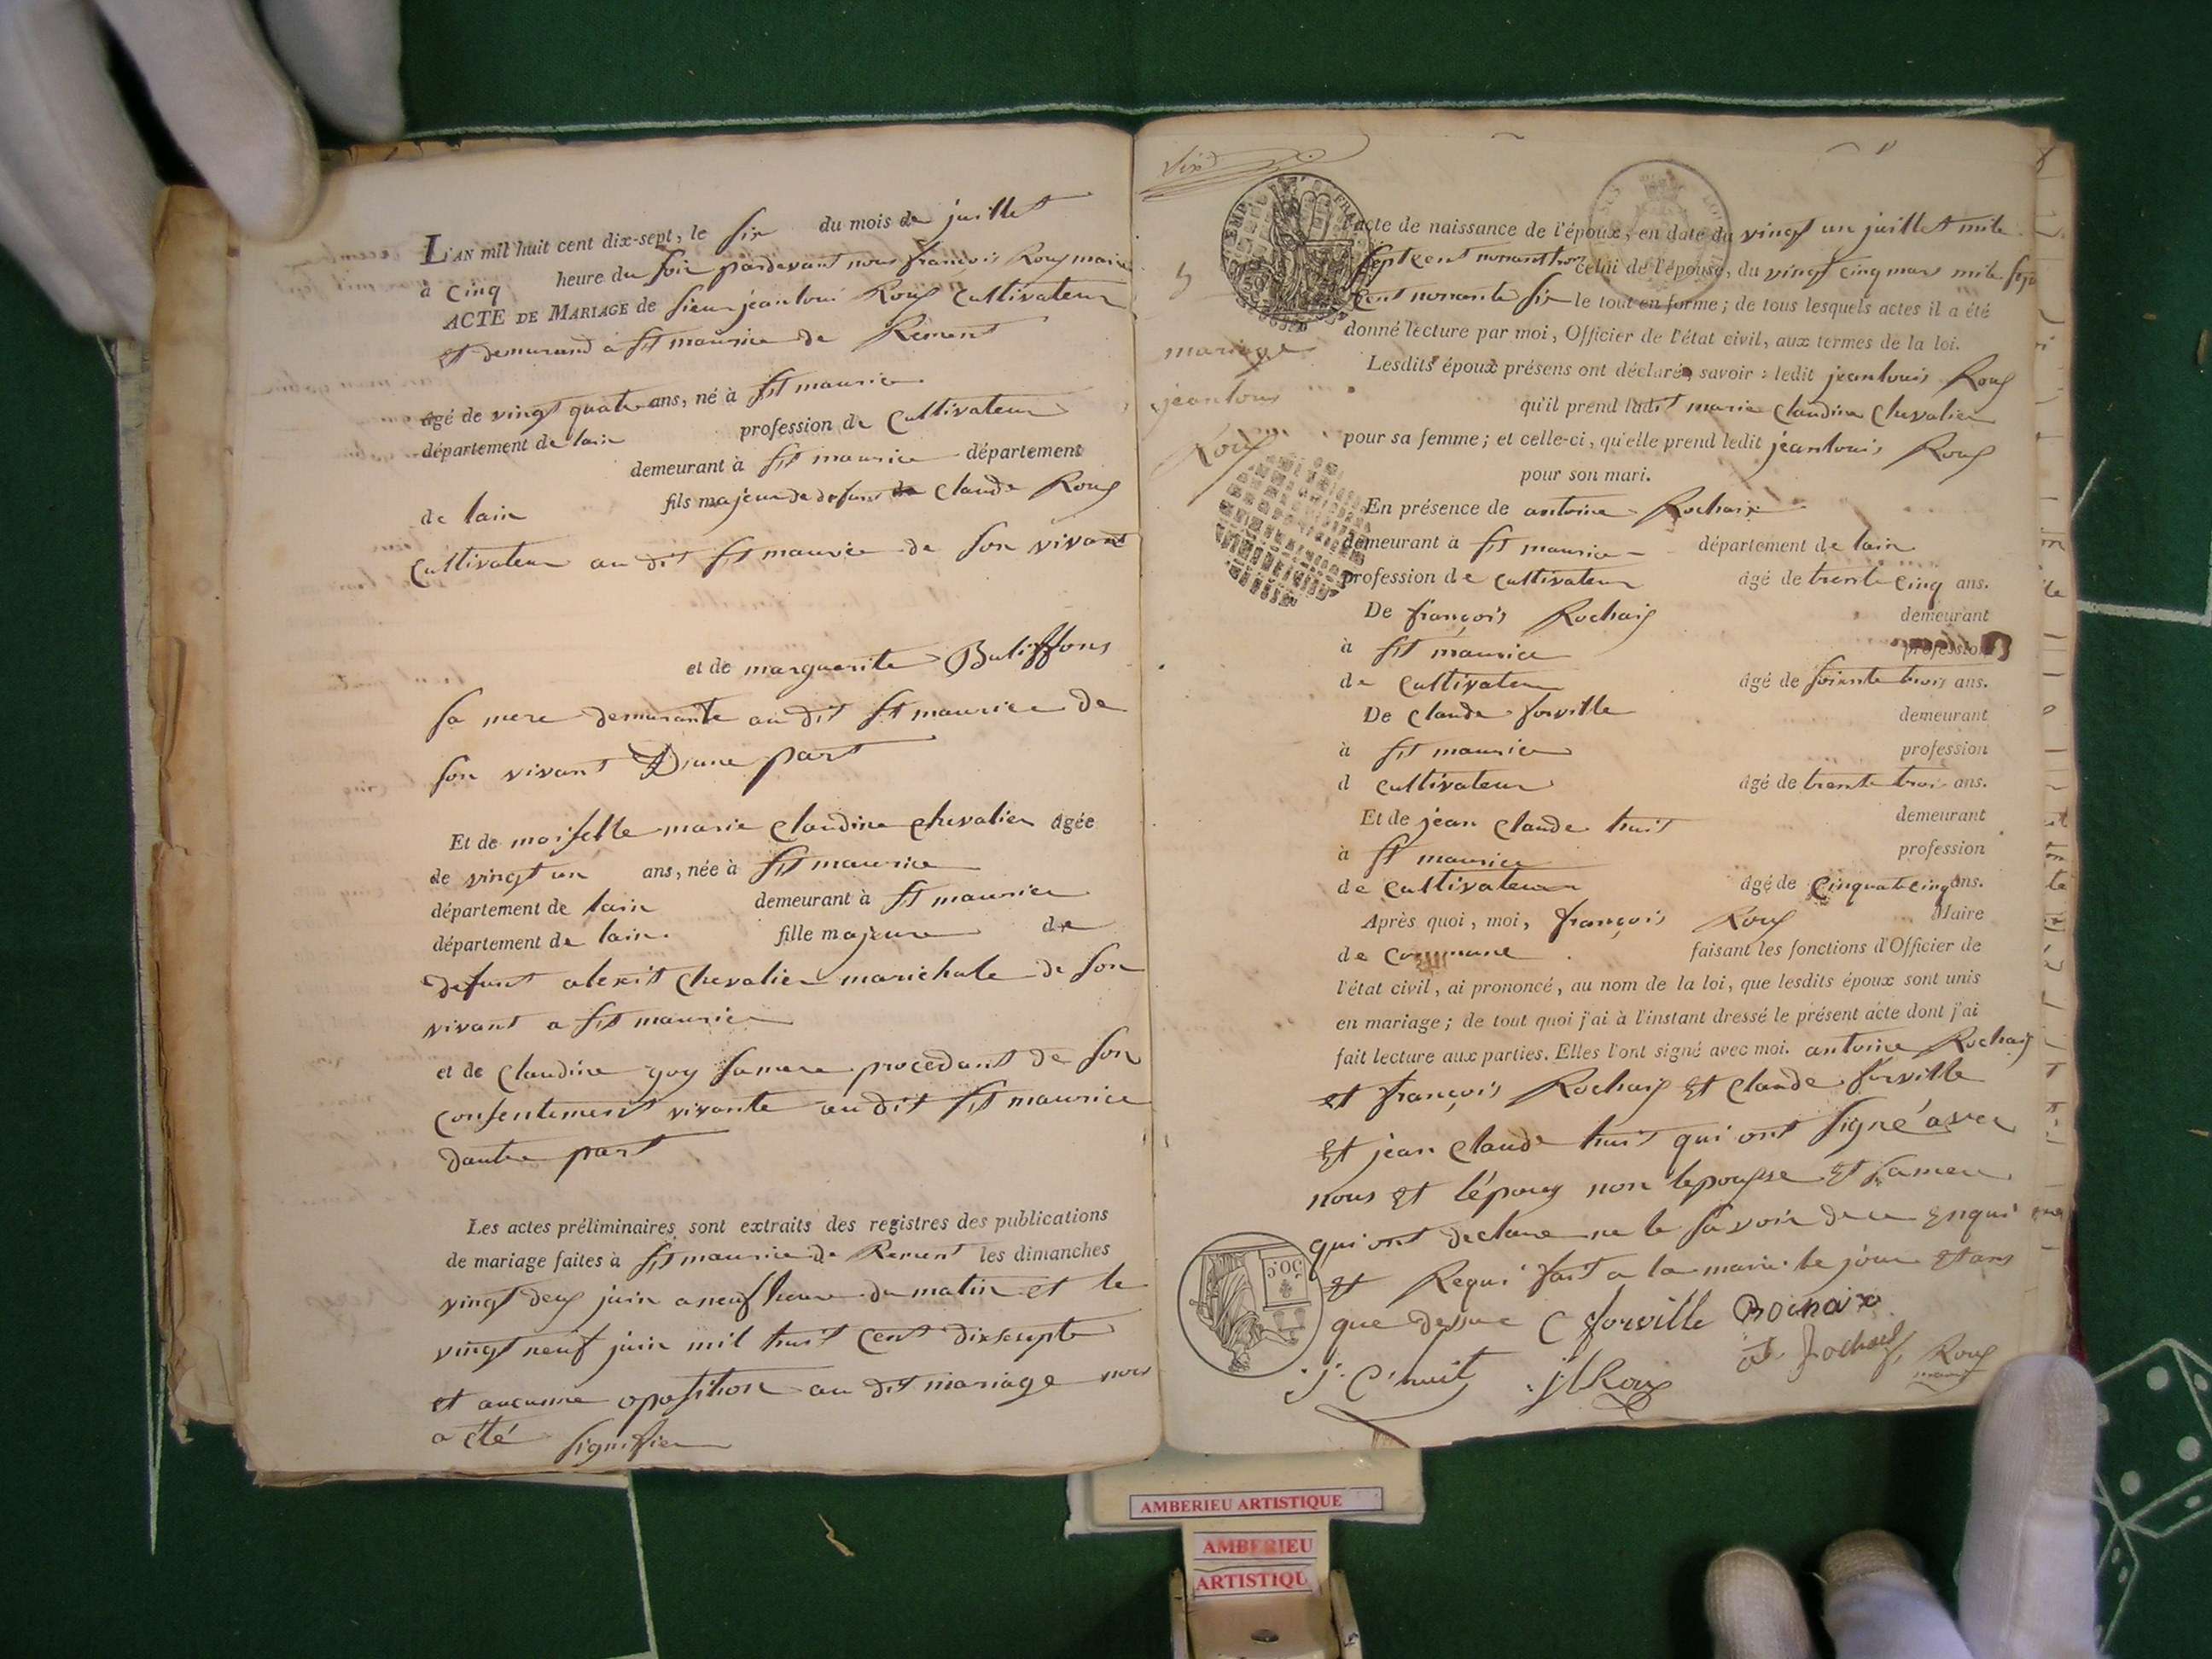 L'AN mil huit cent dix-sept, le six du mois de juillet
à cinq heure du soir pardevant nous françois Roux maire
ACTE DE MARIAGE de sieur jean louis Roux cultivateur
et demurand a st maurice de Rement
âgé de vingt quatre ans, né à st maurice
département de lain profession de cultivateur
demeurant à st maurice département
de lain fils majeur de defunt claude Roux
cultivateur au dit st maurice de son vivant
et de marguerite
sa mere demurante au dit st maurice de
son vivant Dune part
Et de moiselle marie claudine chevalier âgée
de vingt un ans, née à st maurice
département de lain demeurant à st maurice
département de lain. fille majeure de
defunt alexit chevalier marichale de son
vivant a st maurice
et de claudine goy sa mere procedant de son
consentement vivante au dit st maurice
dautre part
Les actes préliminaires sont extraits des registres des publications
de mariage faites à st maurice de Rement les dimanches
vingt deux juin a neuf heure du matin et le
vingt neuf juin mil huit cent dixsepte
et aucunne oposition au dit mariage nous
a été signiffier
5
mariage
jean louis
Roux
acte de naissance de l'époux, en date du vingt un juillet mile
septcent nonantrois celui de l'épouse, du vingt cinq mars mile sept
cent nonante six le tout en forme; de tous lesquels actes il a été
donné lecture par moi, Officier de l'état civil, aux termes de la loi.
Lesdits époux présens ont déclaré, savoir: ledit jean louis Roux
qu'il prend ladit marie claudine chevalier
pour sa femme; et celle-ci, qu'elle prend ledit jean louis Roux
pour son mari.
En présence de antoine Rochaix
demeurant à st maurice département de lain
profession de cultivateur âgé de trente cinq ans.
De françois Rochaix demeurant
à st maurice profession
de cultivateur âgé de soixente trois ans.
De claude forville demeurant
à st maurice profession
d cultivateur âgé de trente trois ans.
Et de jean claude huit demeurant
à st maurice profession
de cultivateur âgé de cinquate cinq ans.
Après quoi, moi, françois Roux Maire
de commune faisant les fonctions d'Officier de
l'état civil, ai prononcé, au nom de la loi, que lesdits époux sont unis
en mariage; de tout quoi j'ai à l'instant dressé le présent acte dont j'ai
fait lecture aux parties. Elles l'ont signé avec moi. antoine Rochaix
et françois Rochaix et claude forville
et jean claude huit qui ont signé avec
nous et l'époux non lepousse et sa mere
qui ont declare ne le savoir de ce enqui
et Requi fait a la mairie le jour et ans
que dessue C forville Rochaix
j. C. huit j l Roux at Rochaix Roux
maire
50C
AMBERIEU ARTISTIQUE
AMBERIEU
ARTISTIQU